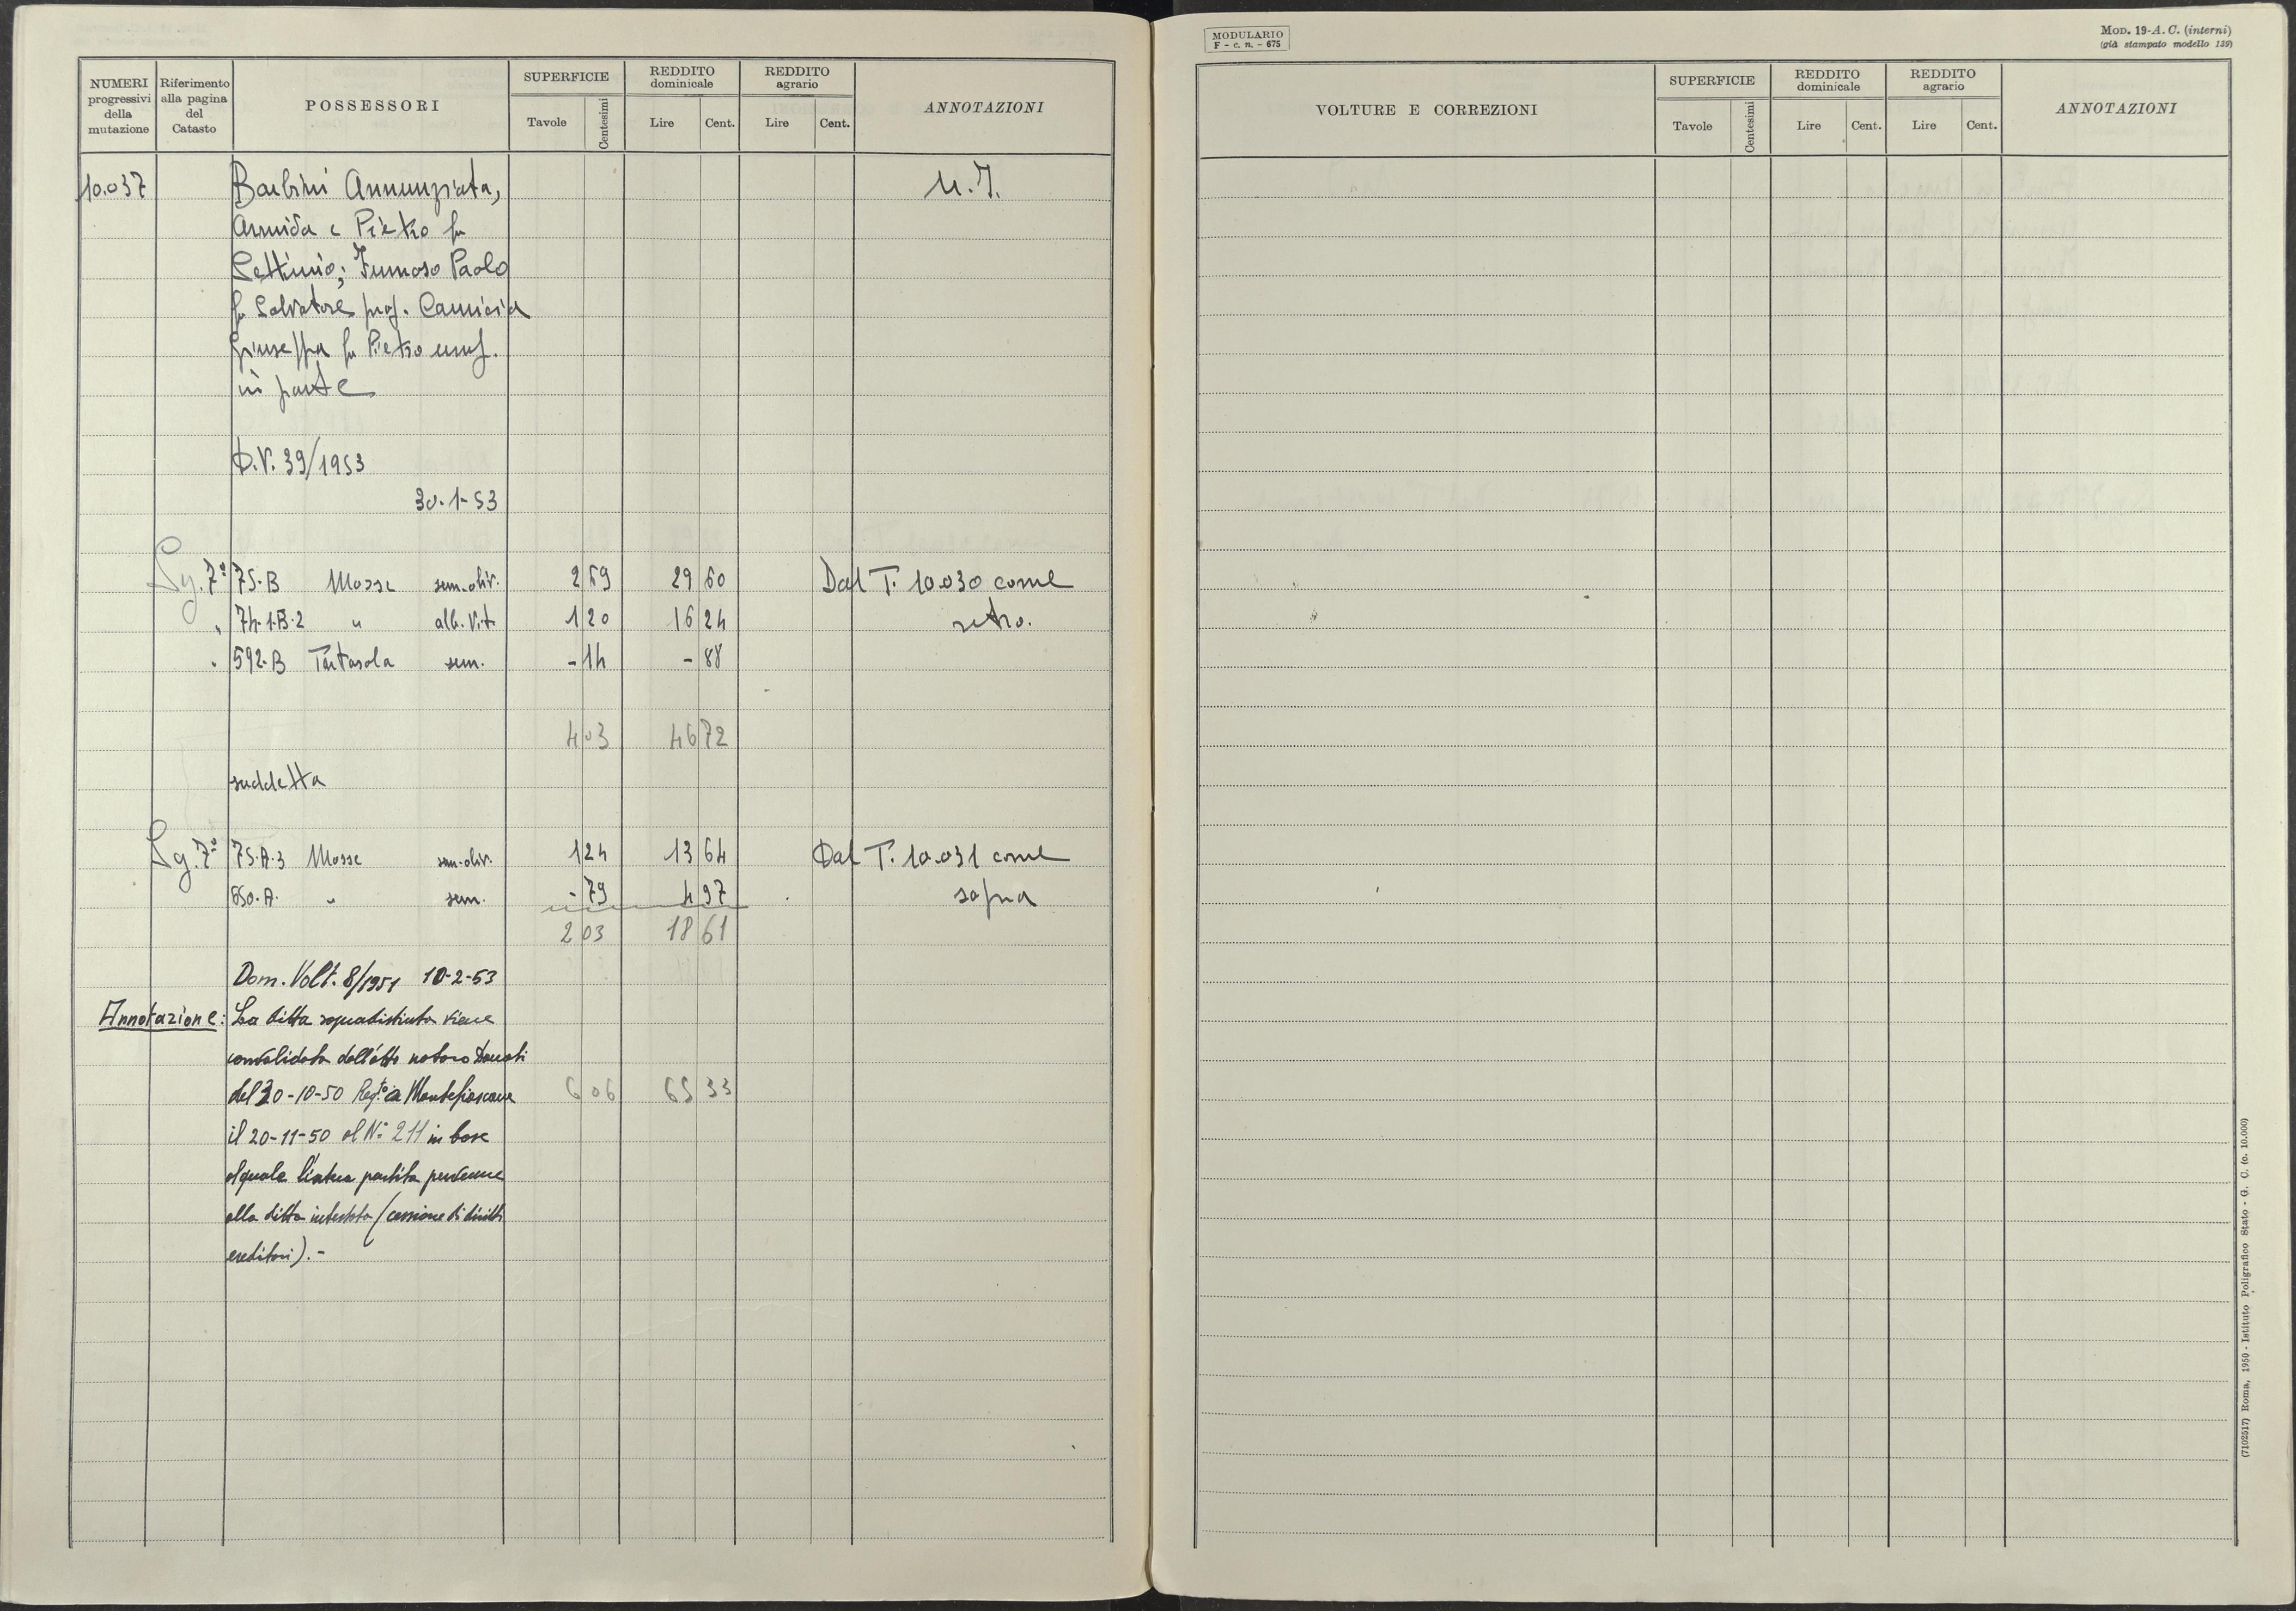 NUMERI progressivi della mutazione | Riferimento alla pagina del Catasto | POSSESSORI | SUPERFICIE Tavole Centesimi | REDDITO dominicale Lire Cent. | REDDITO agrario Lire Cent. | ANNOTAZIONI
10.037 Barbini Annunziata, U.I.
Armida e Pietro fu
Settimio; Fumoso Paolo
fu Salvatore prop. Camicia
Giuseppa fu Pietro usuf.
in parte
D.V. 39/1953
30-1-53
Sg. 7ª 75-B Mosse sem. oliv. 2 69 29 60 Dal T. 10.030 come
" 74-1-B-2 " alb. vit. 1 20 16 24 retro.
" 592-B Tartarola sem. - 14 - 88
4 03 46 72
suddetta
Sg. 7ª 75-A-3 Mosse sem. oliv. 1 24 13 64 Dal T. 10.031 come
650-A. " sem. - 79 4 97 sopra
2 03 18 61
Dom. Volt. 8/1951 10-2-53
Annotazione: La ditta sopradistinta viene
convalidata dall'atto notaro Donati
del 20-10-50 Reg.to a Montefiascone 6 06 65 33
il 20-11-50 al N° 211 in base
al quale l'intera partita perviene
alla ditta intestata (cessione di diritti
ereditari). -
MODULARIO
F - c. n. - 675
MOD. 19-A. C. (interni)
(già stampato modello 139)
VOLTURE E CORREZIONI | SUPERFICIE Tavole Centesimi | REDDITO dominicale Lire Cent. | REDDITO agrario Lire Cent. | ANNOTAZIONI
(7102517) Roma, 1950 - Istituto Poligrafico Stato - G. C. (c. 10.000)